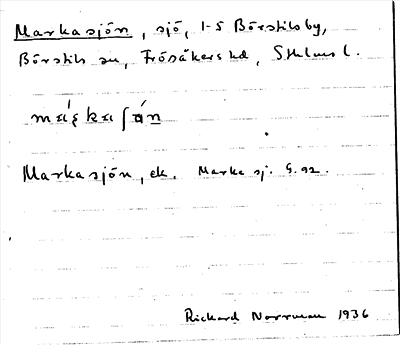 Markasjön, sjö, 1-5 Börstils by,
Börstils sn, Frösåkers hd, Sthlms l.
Markasjön, ek. Marka sj. G. 92.
Rickard Norrman 1936